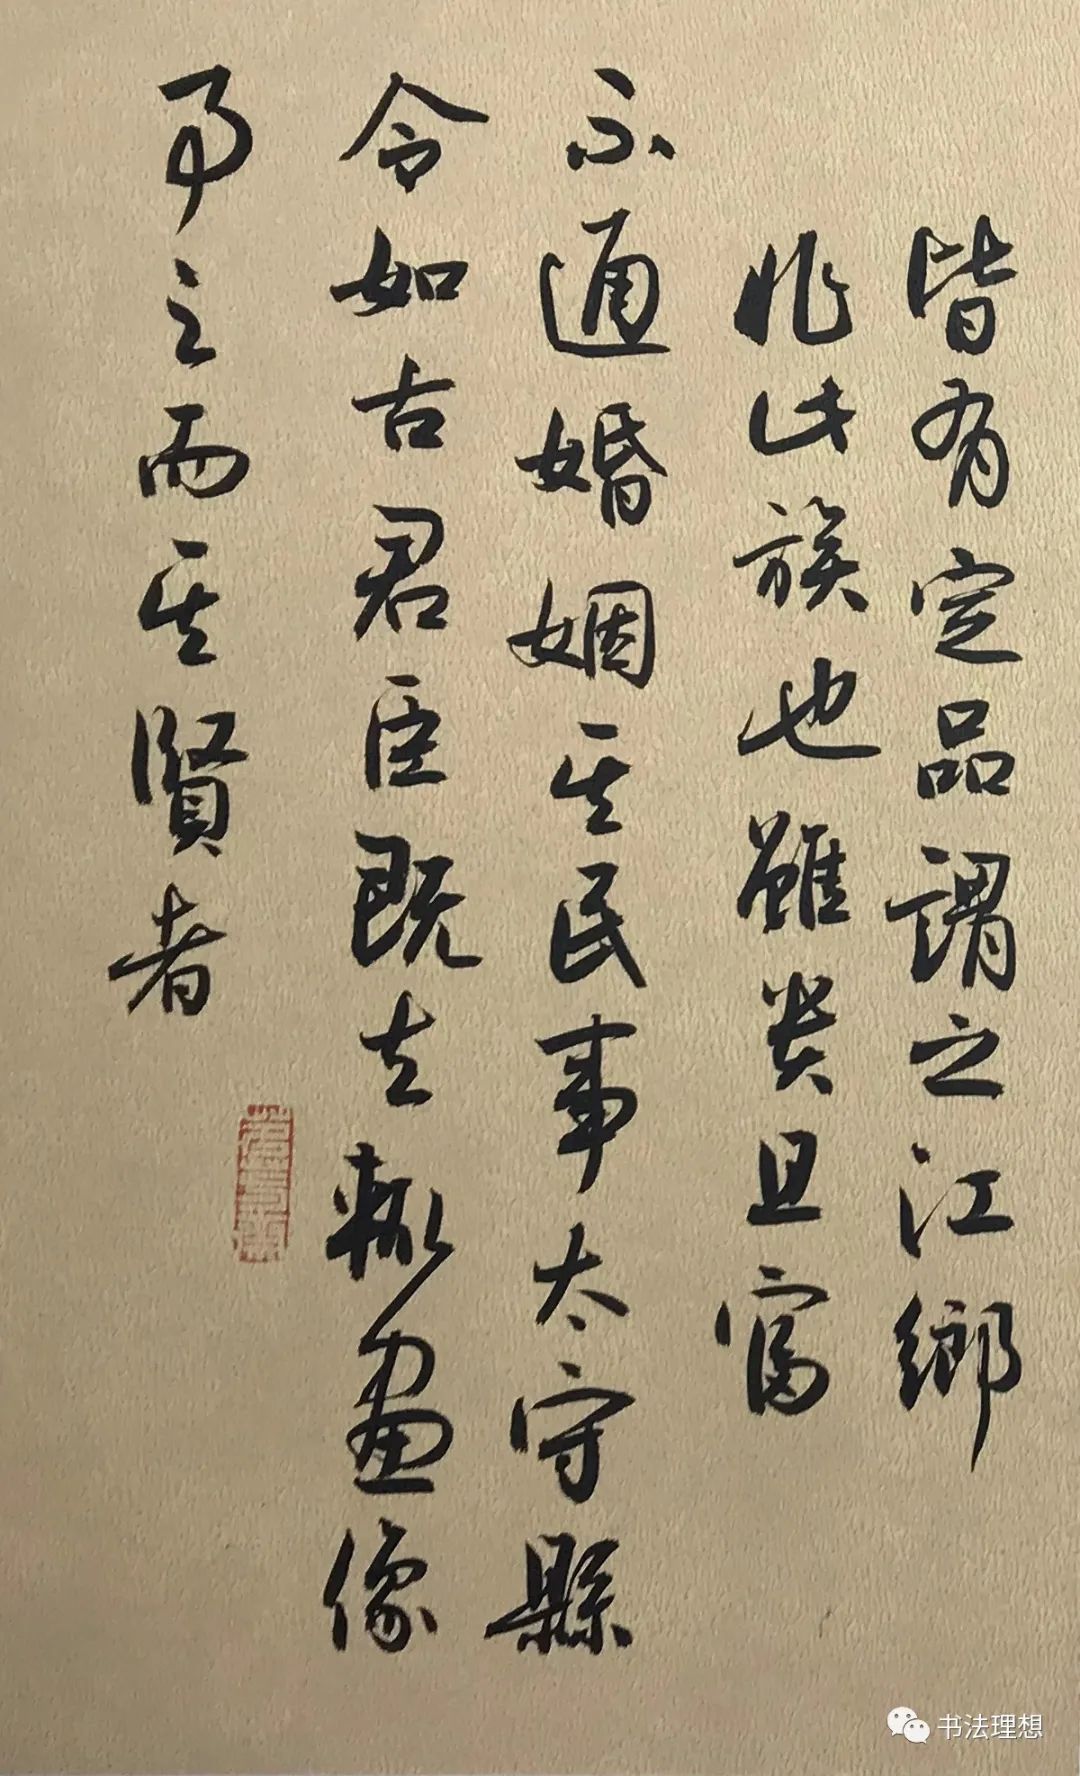 皆有定品謂之江鄉
非此族也雖貴且富
不通婚姻其民事太守縣
令如古君臣既去輒畫像
事之而其賢者
书法理想